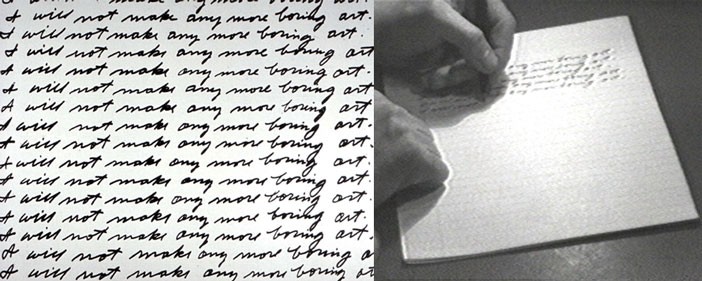 I will not make any more boring art.
I will not make any more boring art.
I will not make any more boring art.
I will not make any more boring art
I will not make any more boring art.
I will not make any more boring art
I will not make any more boring art
I will not make any more boring art.
I will not make any more boring art.
I will not make any more boring art.
I will not make any more boring art.
I will not make any more boring art.
I will not make any more boring art.
I will not make any more boring art.
I will not make any more boring a
I will not make any more boring art